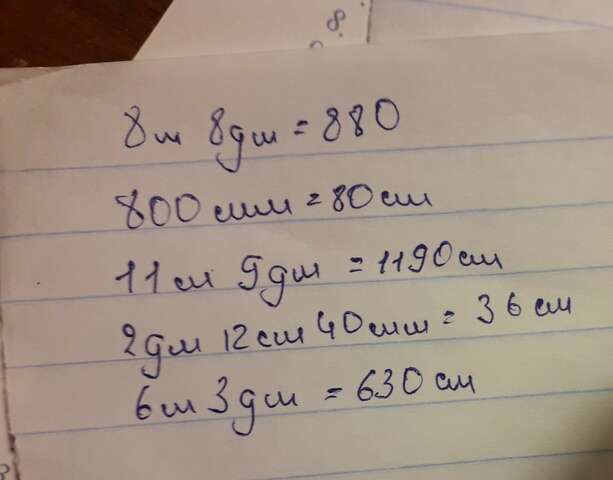 8.
8м 8дм = 880
800 мм = 80 см
11 м 9 дм = 1190 см
2дм 12 см 40 мм = 36 см
6 м 3 дм = 630 см